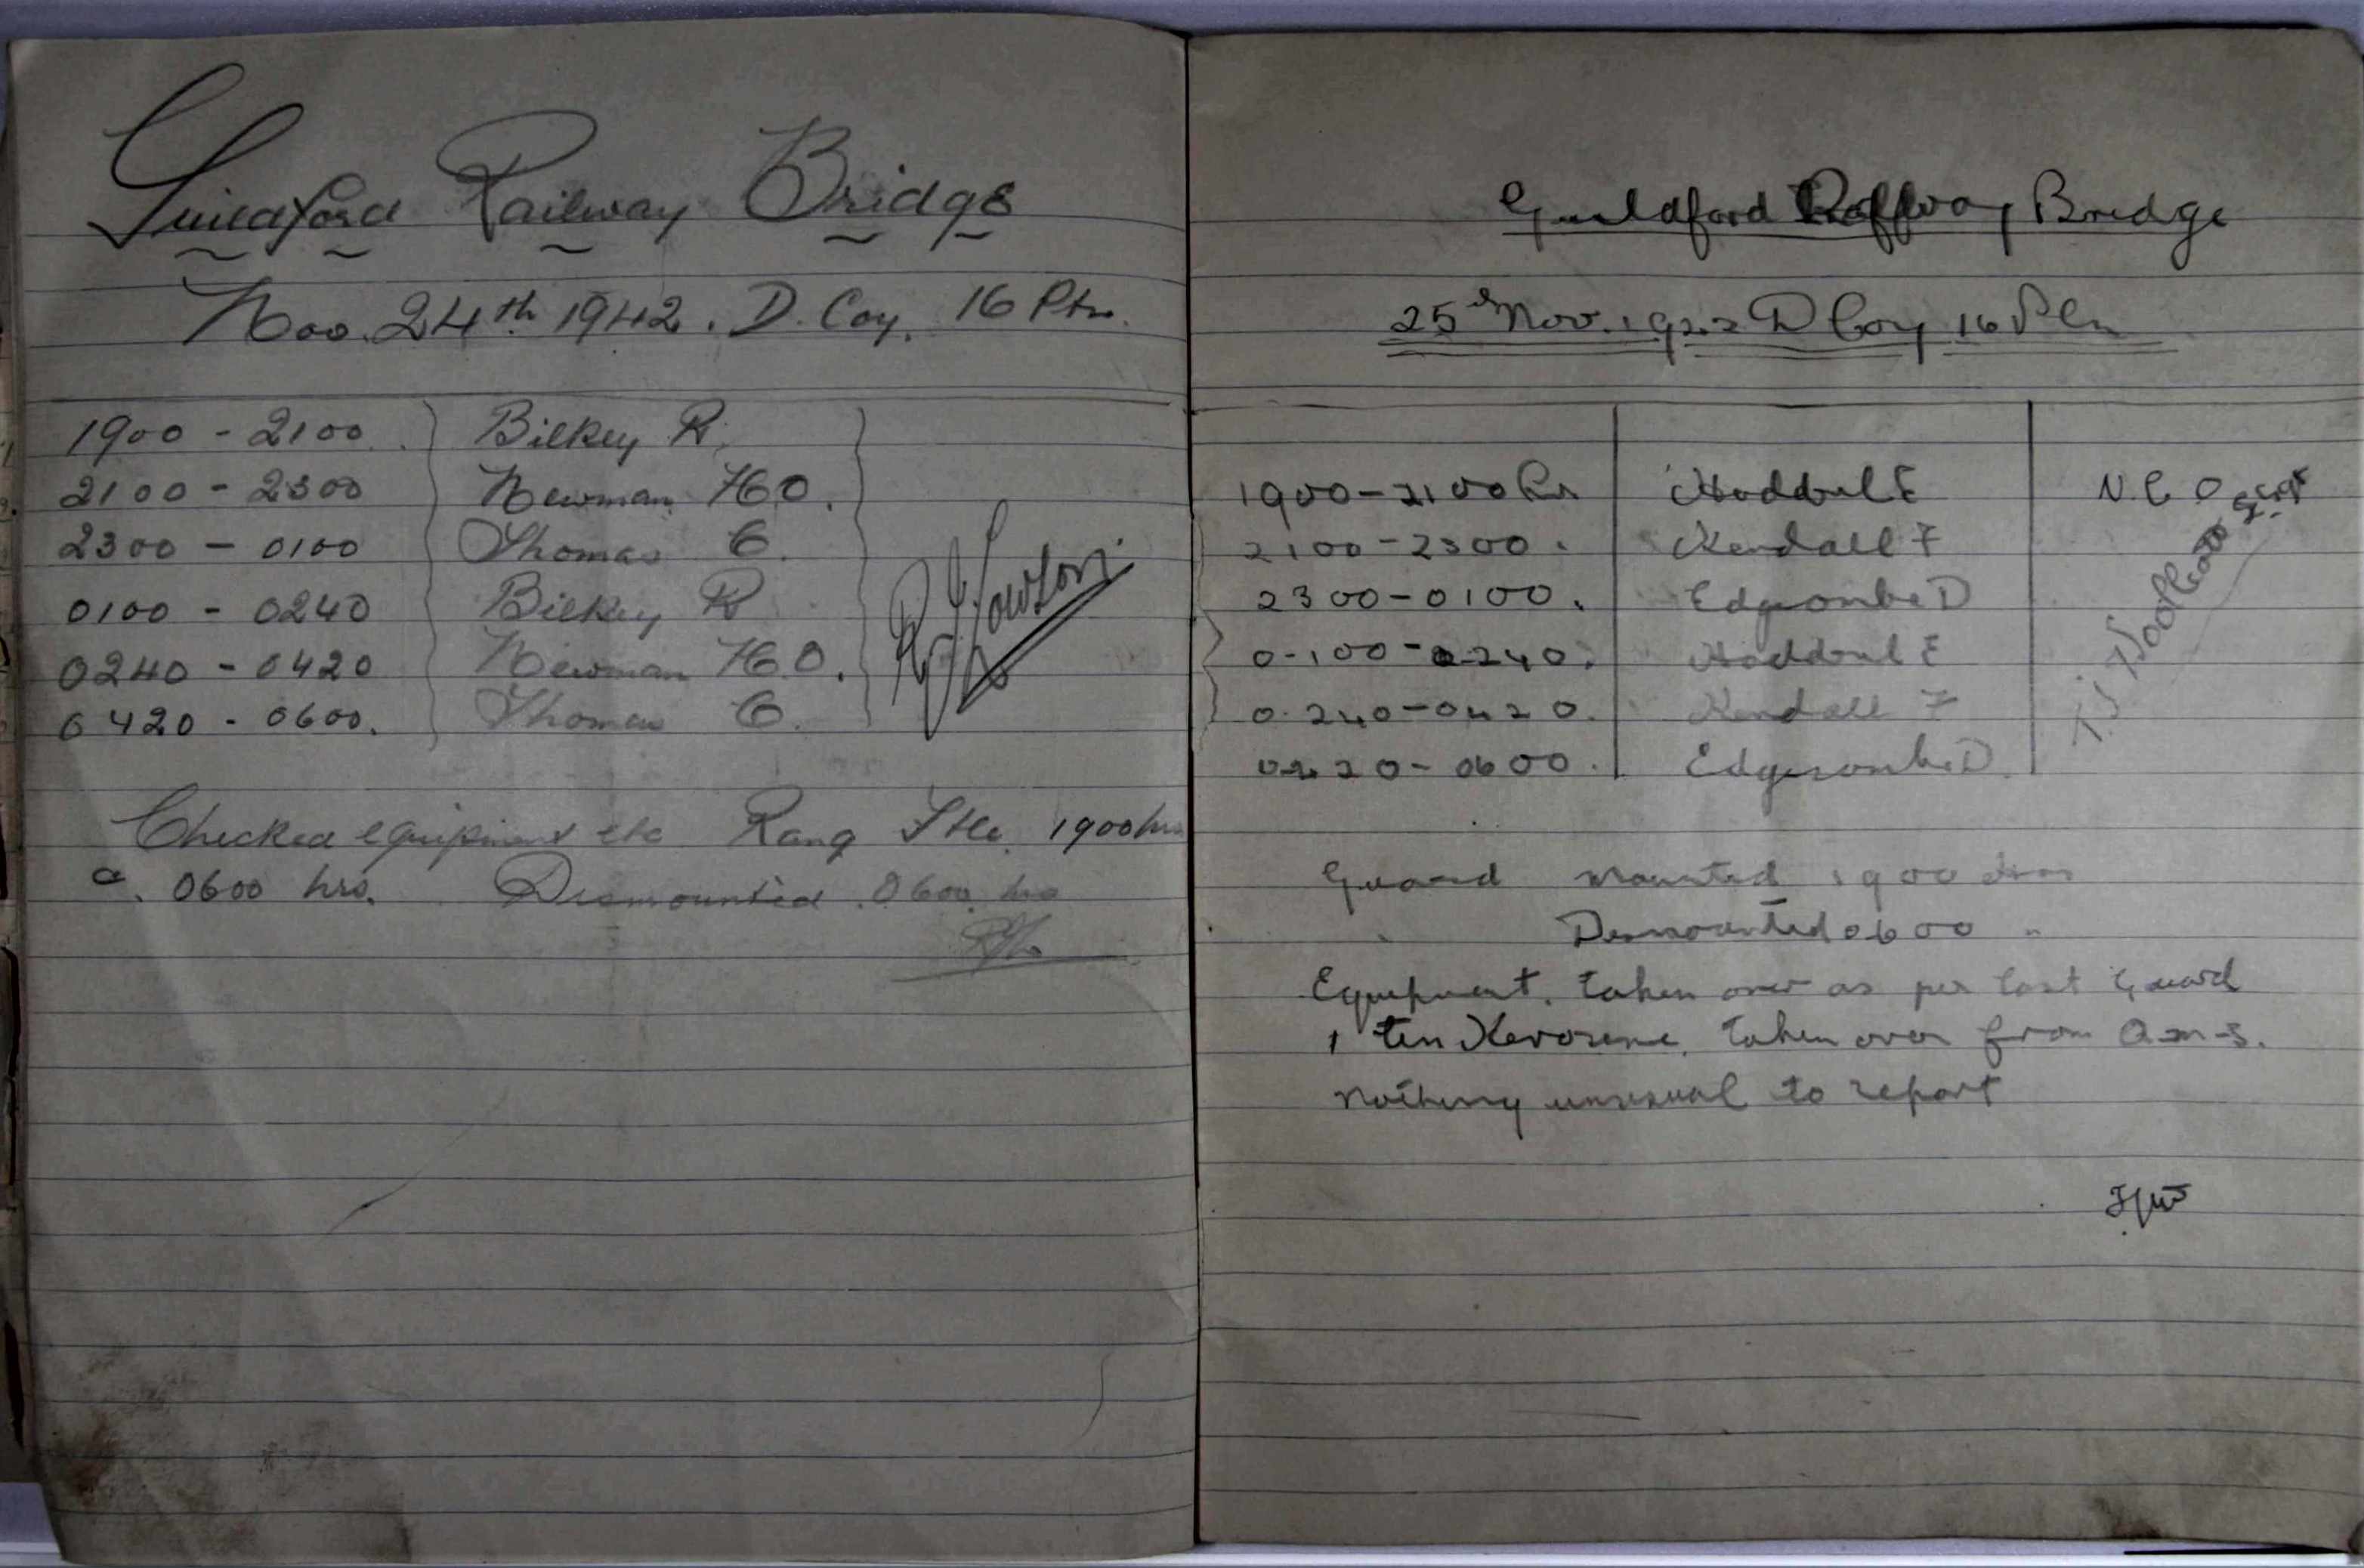 Guildford Railway Bridge
Nov. 24th 1942. D. Coy. 16 Ptn.
1900 - 2100 Bilkey R.
2100 - 2300 Newman H.O.
2300 - 0100 Thomas C.
0100 - 0240 Bilkey R
0240 - 0420 Newman H.O.
0420 - 0600. Thomas C.
Checked equipment etc Rang 1900 hrs
0600 hrs. Dismounted 0600 hrs
Guildford Railway Bridge
25th Nov. 1942 D Coy 16 Pln
1900-2100 Hrs Hoddrul E N.C.O
2100-2300. Kendall F
2300-0100. Edgcombe D
0100-0240. Hoddrul E
0240-0420. Kendall F
0420-0600. Edgcombe D.
Sergt
Guard mounted 1900 hrs
Dismounted 0600 "
Equipment. taken over as per last Guard
1 tin Kerosene. taken over from
Nothing unusual to report